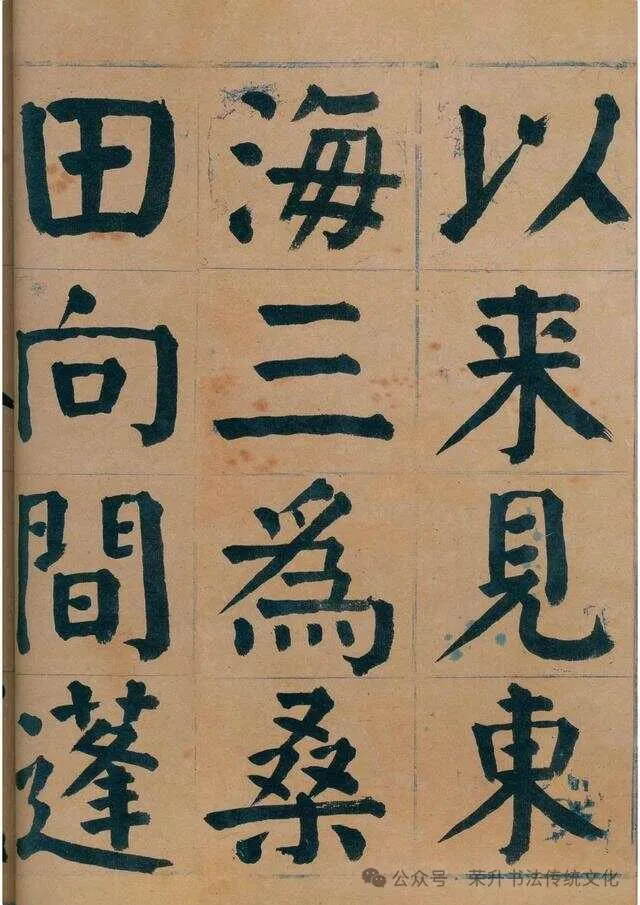 以来見東
海三為桑
田向間蓬
公众号·荣升书法传统文化